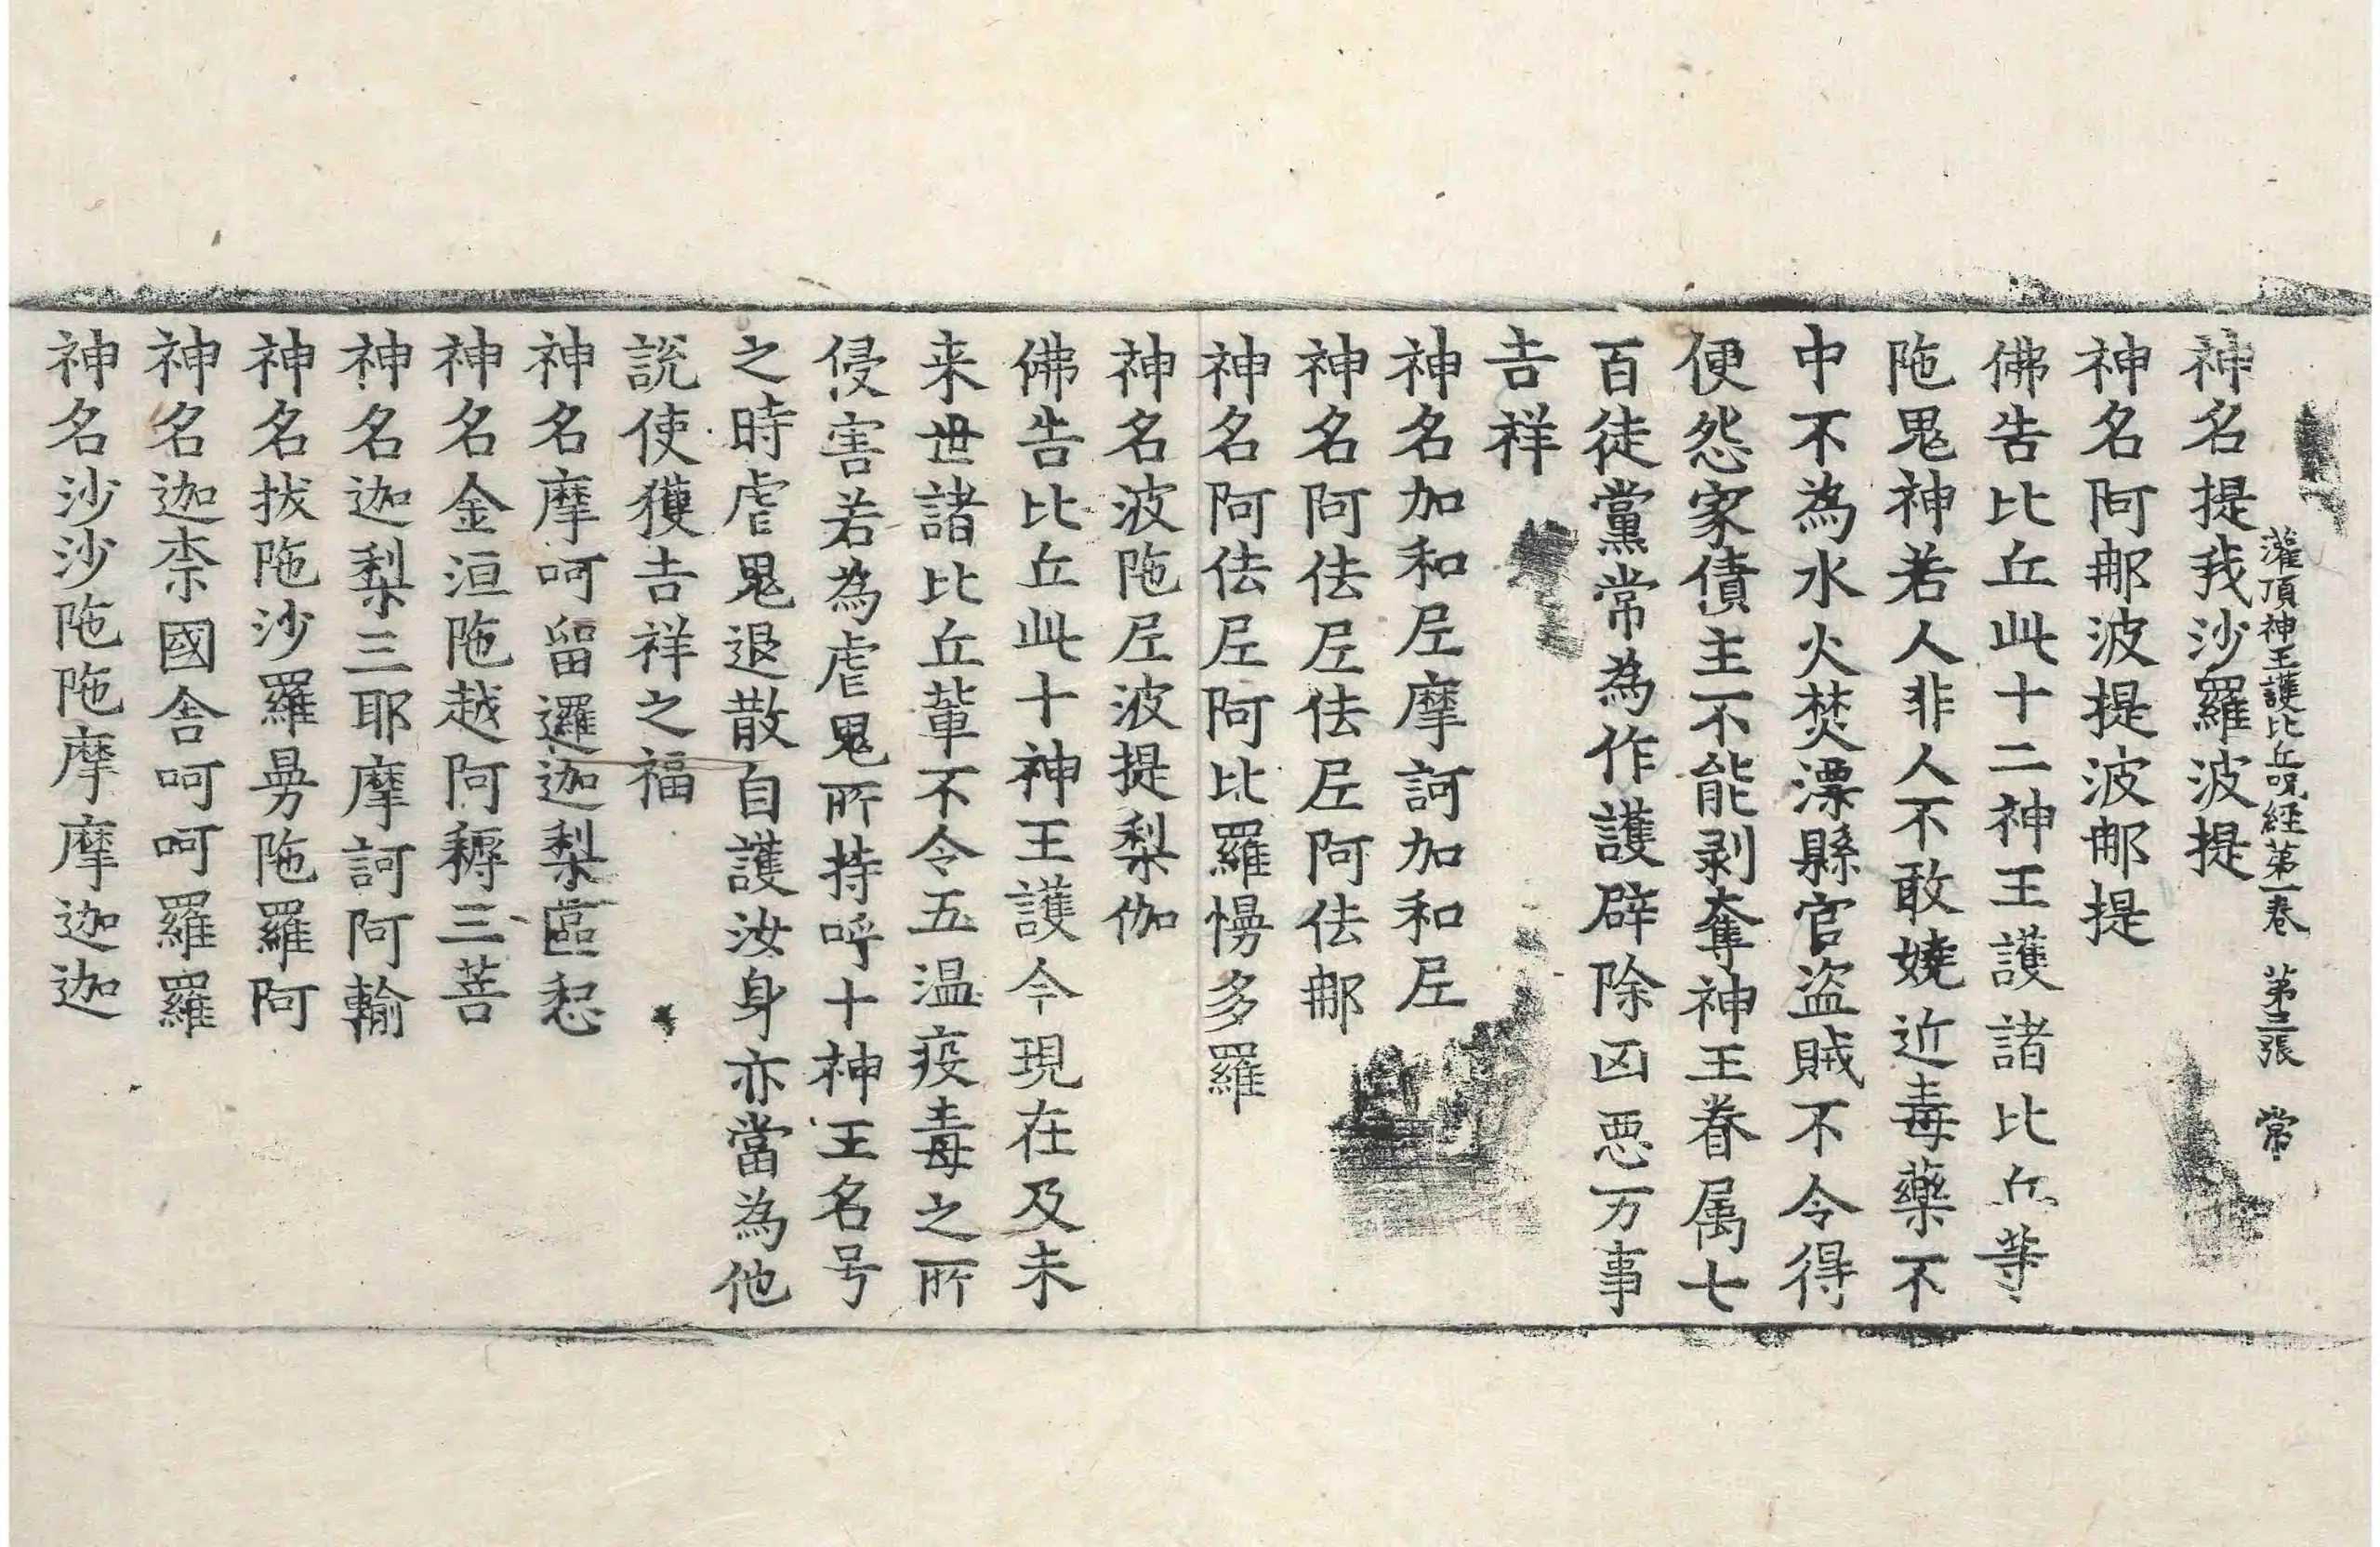 灌頂神王護比丘呪経苐一卷 苐三張 常
神名提我沙羅波提
神名阿郍波提波郍提
佛告比丘此十二神王護諸比丘等
陁鬼神若人非人不敢嬈近毒藥不
中不為水火焚漂縣官盜賊不令得
便怨家債主不能剥奪神王眷属七
百徒黨常為作護辟除凶悪万事
吉祥
神名加和𡰱摩訶加和𡰱
神名阿佉𡰱佉𡰱阿佉郍
神名阿佉𡰱阿比羅慢多羅
神名波陁𡰱波提梨伽
佛告比丘此十神王護今現在及未
来世諸比丘輩不令五温疫毒之所
侵害若為虐鬼所持呼十神王名号
之時虐鬼退散自護汝身亦當為他
說使獲吉祥之福
神名摩呵留邏迦梨區惒
神名金洹陁越阿耨三菩
神名迦梨三耶摩訶阿輸
神名拔陁沙羅昙陁羅阿
神名迦柰國舍呵呵羅羅
神名沙沙陁陁摩摩迦迦